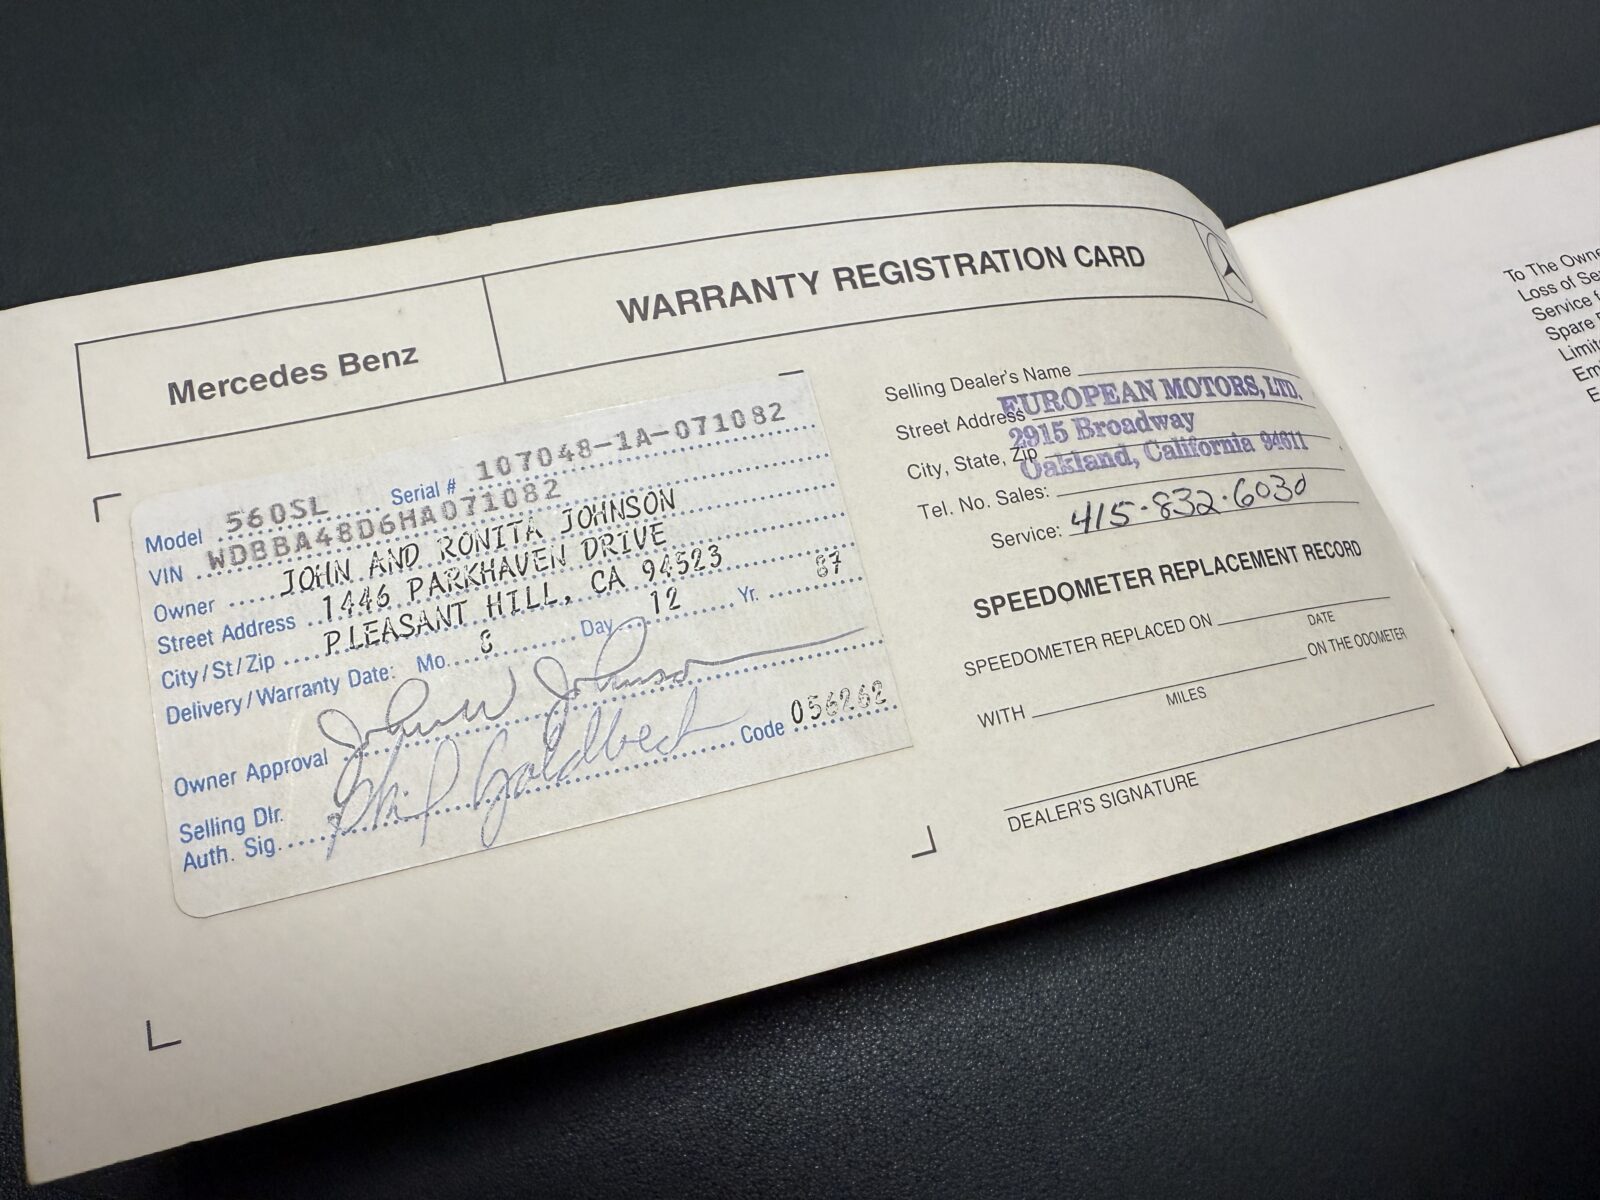 Mercedes Benz
WARRANTY REGISTRATION CARD
Model 560SL Serial # 107048-1A-071082
VIN WDBBA48D6HA071082
Owner JOHN AND RONITA JOHNSON
Street Address 1446 PARKHAVEN DRIVE
City/St/Zip PLEASANT HILL, CA 94523
Delivery/Warranty Date: Mo. 8 Day 12 Yr. 87
Owner Approval John W Johnson
Selling Dlr.
Auth. Sig. Phil Goldbeck Code 056262
Selling Dealer's Name
EUROPEAN MOTORS, LTD.
Street Address
2915 Broadway
City, State, Zip
Oakland, California 94611
Tel. No. Sales:
Service: 415-832-6030
SPEEDOMETER REPLACEMENT RECORD
SPEEDOMETER REPLACED ON
DATE
WITH
MILES
ON THE ODOMETER
DEALER'S SIGNATURE
To The Owne
Loss of Se
Service f
Spare
Limit
Em
E